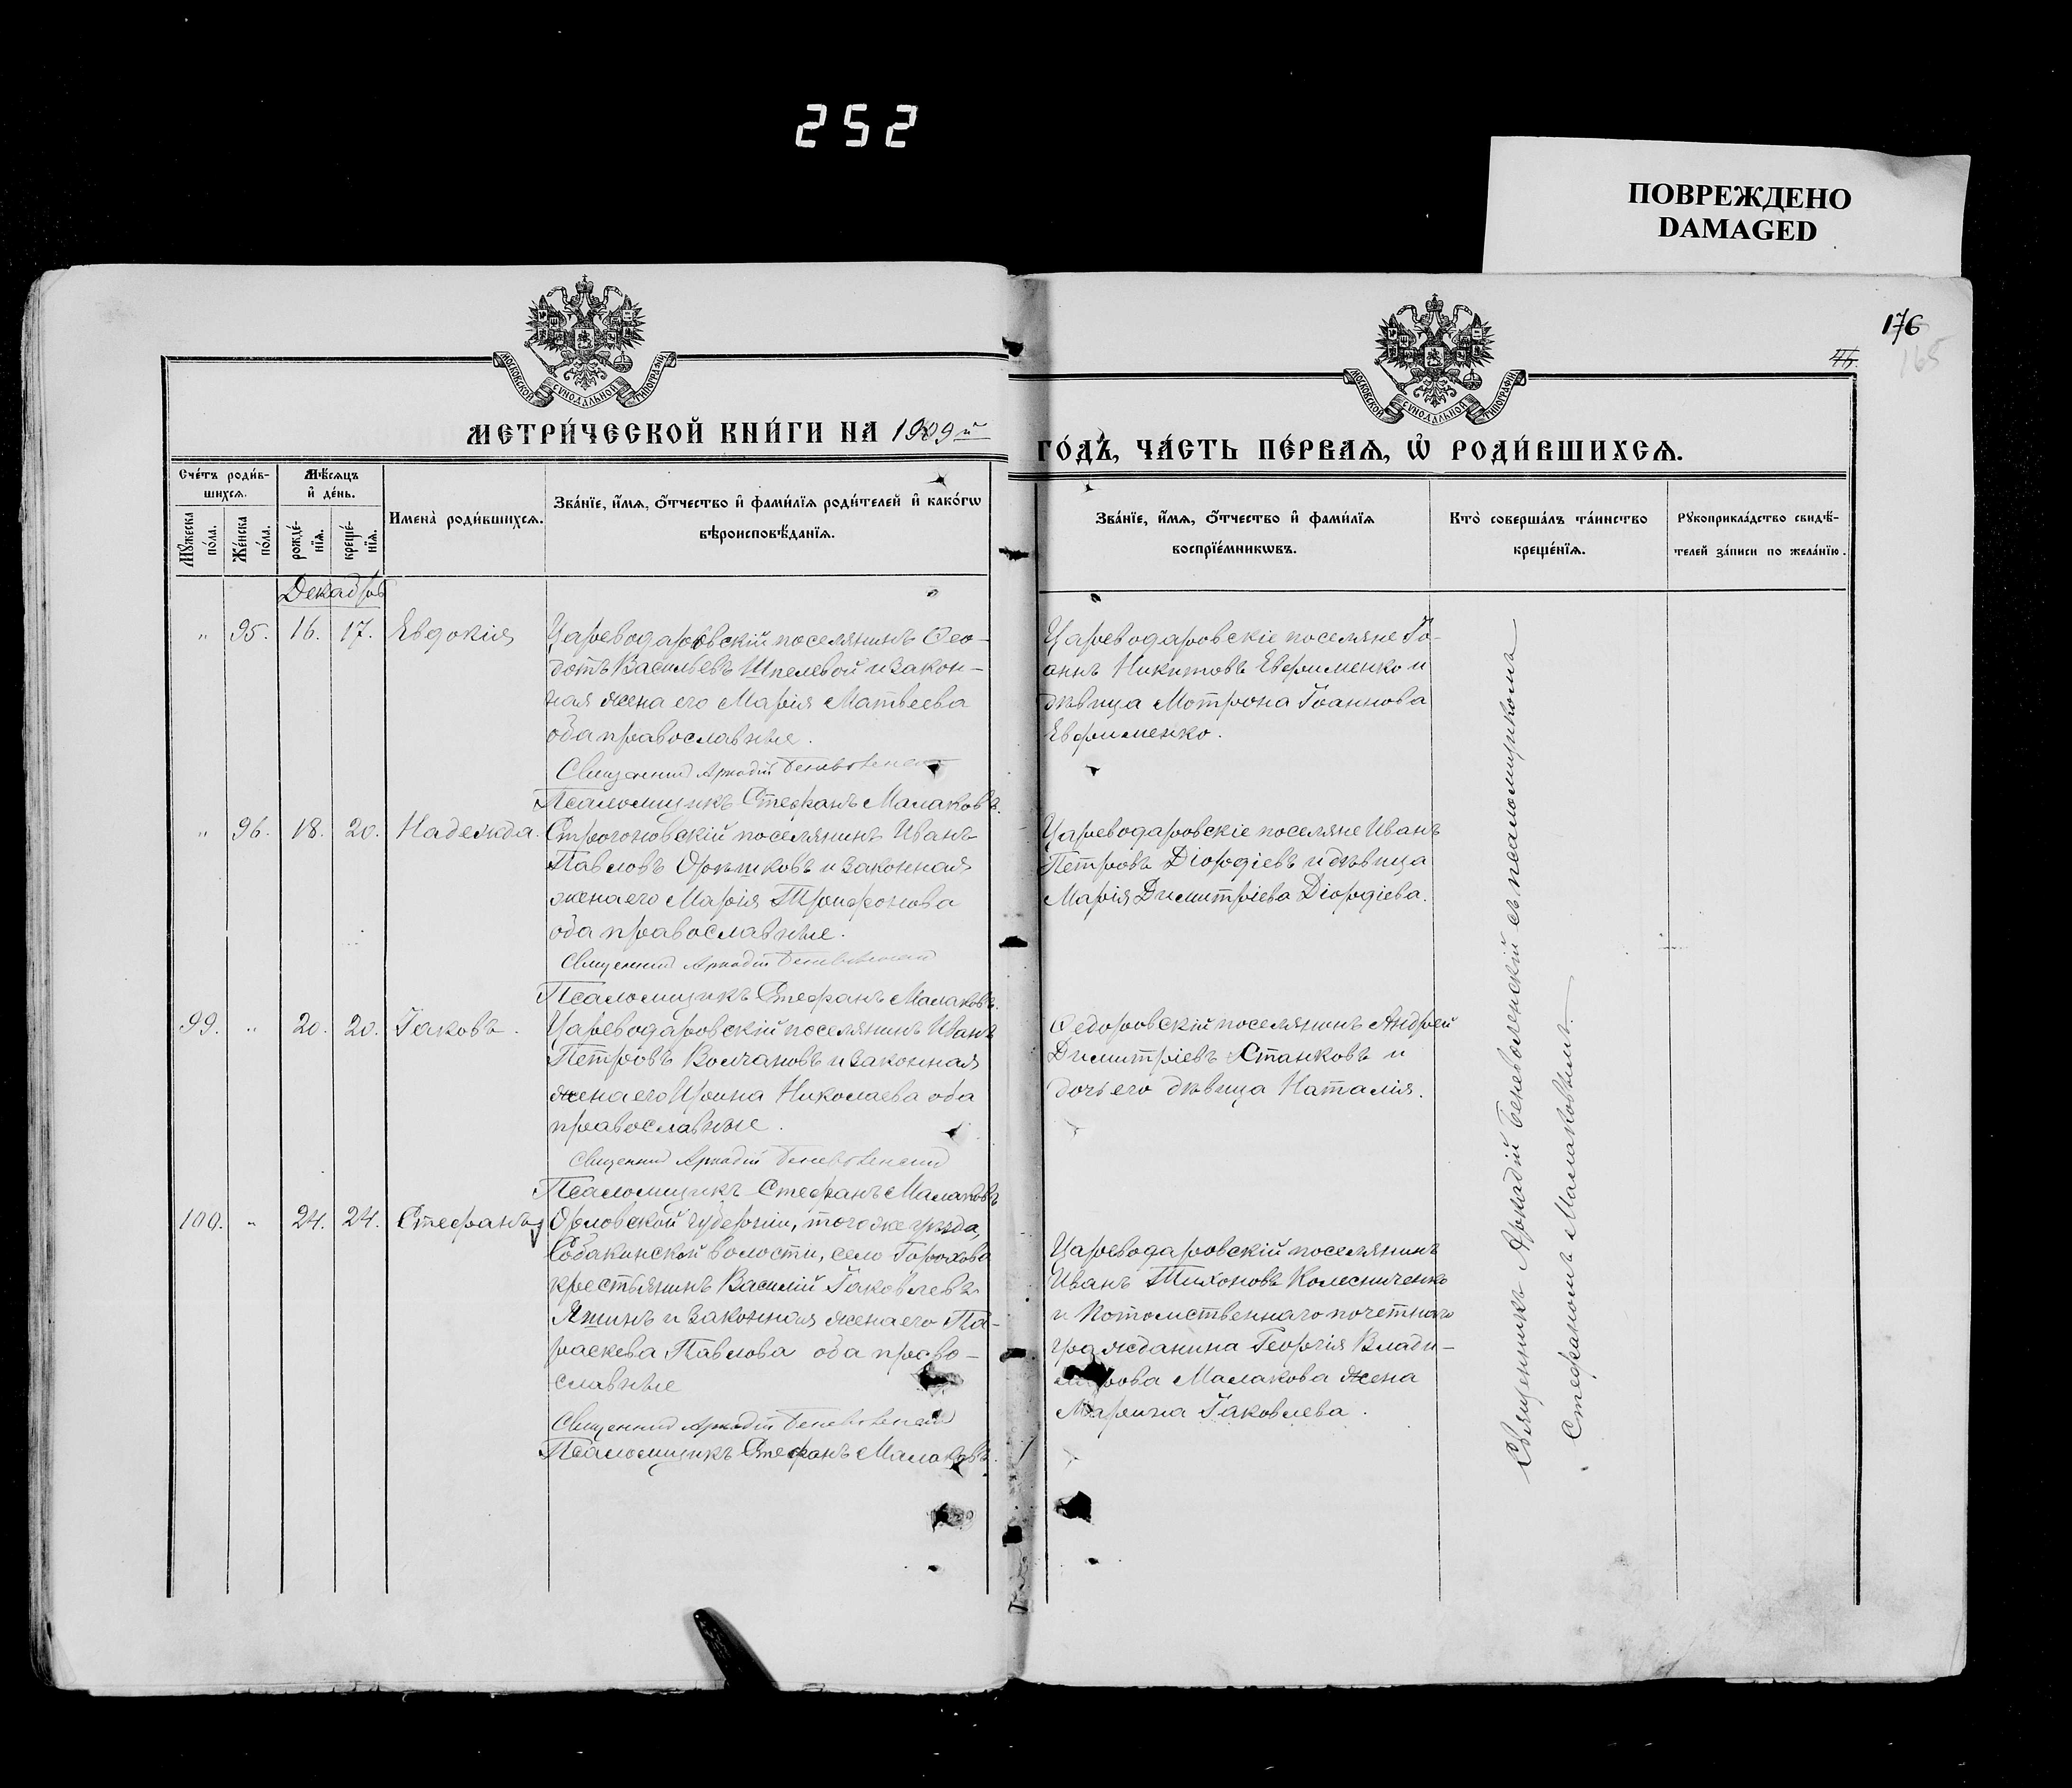 252
ПОВРЕЖДЕНО
DAMAGED
176
165
МОСКОВСКОЙ СУНОДАЛЬНОЙ ТИПОГРАФИИ
МОСКОВСКОЙ СУНОДАЛЬНОЙ ТИПОГРАФИИ
МЕТРИ́ЧЕСКОЙ КНИ́ГИ НА 1909й
ГО́ДЪ, ЧА́СТЬ ПЕ́РВАѦ, Ѡ҆ РОДИ́ВШИХСѦ.
Сче́тъ роди́в-
шихсѧ.
Мѣ́сѧцъ
и҆ де́нь.
Мꙋ́жеска
по́ла.
Же́нска
по́ла.
рожде́-
нїѧ.
креще́-
нїѧ.
Имена̀ роди́вшихсѧ.
Зва́нїе, и҆́мѧ, ѻ҆́тчество и҆ фами́лїѧ роди́телей и҆ како́гѡ
вѣроисповѣ́данїѧ.
Зва́нїе, и҆́мѧ, ѻ҆́тчество и҆ фами́лїѧ
воспрїе́мникѡвъ.
Кто̀ соверша́лъ та́инство
креще́нїѧ.
Рꙋкоприкла́дство свидѣ́-
телей за́писи по жела́нїю.
Декабрь
" 95. 16. 17. Евдокія
Цареводаровскій поселянинъ Ѳео-
дотъ Васильевъ Шпелевой и закон-
ная жена его Марія Матвеева
оба православные.
Священник Аркадій Беневоленскій
Псаломщикъ Стефанъ Малаковъ.
Цареводаровскіе поселяне Іо-
аннъ Никитовъ Ефрименко и
дѣвица Мотрона Іоаннова
Ефрименко.
" 96. 18. 20. Надежда.
Строгоновскій поселянинъ Иванъ
Павловъ Орѣшковъ и законная
жена его Марія Трифонова
оба православные.
Священник Аркадій Беневоленскій
Псаломщикъ Стефанъ Малаковъ.
Цареводаровскіе поселяне Иванъ
Петровъ Діордіевъ и дѣвица
Марія Димитріева Діордіева.
99. " 20. 20. Іаковъ.
Цареводаровскій поселянинъ Иванъ
Петровъ Волчановъ и законная
жена его Ирина Николаева оба
православные.
Священник Аркадій Беневоленскій
Псаломщикъ Стефанъ Малаковъ
Ѳедоровскій поселянинъ Андрей
Димитріевъ Станковъ и
дочь его дѣвица Наталія.
100. " 24. 24. Стефанъ
Орловской губерніи, того же уѣзда,
Собакинской волости, село Горохово
крестьянинъ Василій Іаковлевъ
Яшинъ и законная жена его Па-
раскева Павлова оба право-
славные
Священник Аркадій Беневоленскій
Псаломщикъ Стефанъ Малаковъ.
Цареводаровскій поселянинъ
Иванъ Тихоновъ Колесниченко
и Потомственнаго почетнаго
гражданина Георгія Влади-
мірова Малакова жена
Марина Іаковлева.
Священникъ Аркадій Беневоленскій съ псаломщикомъ
Стефаномъ Малаковымъ.